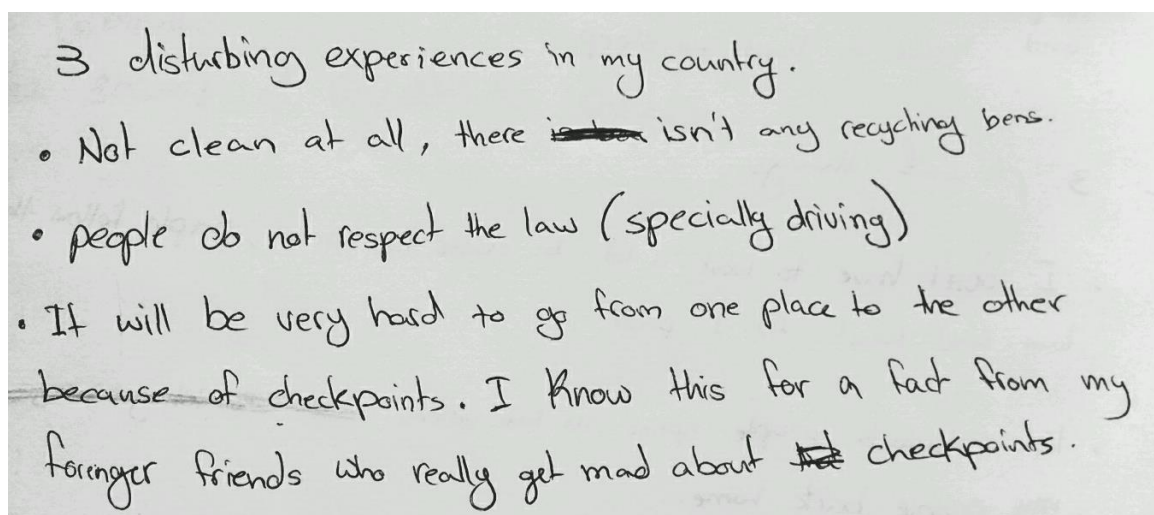 3 disturbing experiences in my country.
• Not clean at all, there isn't any recycling bens.
• people do not respect the law (specially driving)
• It will be very hard to go from one place to the other
because of checkpoints. I know this for a fact from my
forenger friends who really get mad about checkpoints.